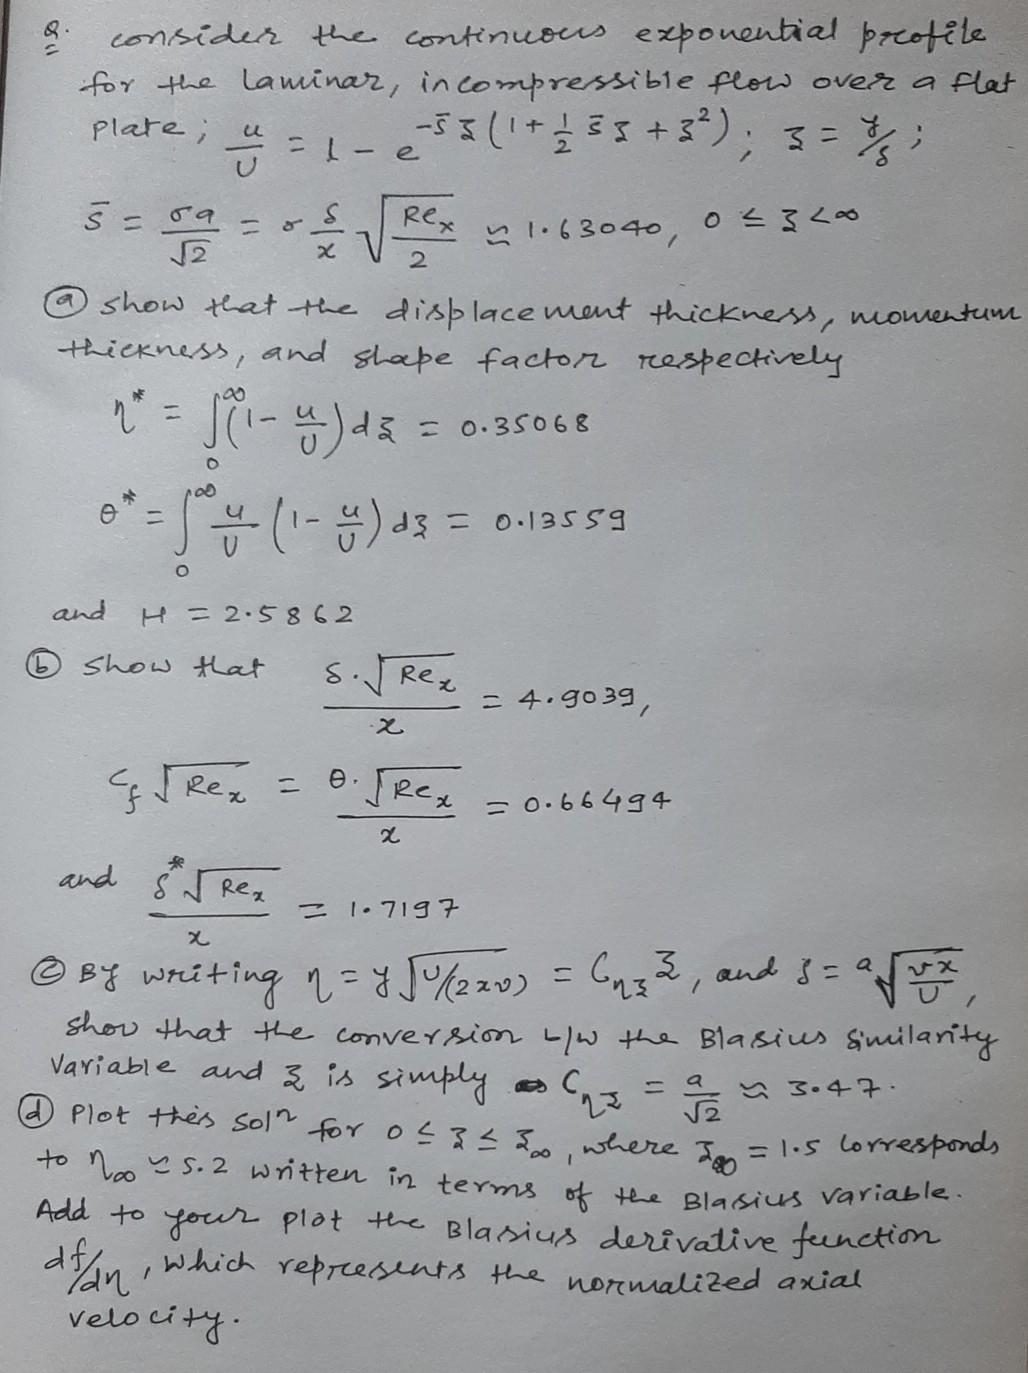 Q. consider the continuous exponential profile
for the laminar, incompressible flow over a flat
plate; u/U = 1 - e^{-s̄ ξ (1 + 1/2 s̄ ξ + ξ²)}; ξ = y/δ;
s̄ = σa/√2 = σ δ/x √(Re_x/2) ≃ 1.63040, 0 ≤ ξ < ∞
(a) show that the displacement thickness, momentum
thickness, and shape factor respectively
η* = ∫₀^∞ (1 - u/U) dξ = 0.35068
θ* = ∫₀^∞ u/U (1 - u/U) dξ = 0.13559
and H = 2.5862
(b) show that δ.√Re_x / x = 4.9039,
C_f √Re_x = θ.√Re_x / x = 0.66494
and δ* √Re_x / x = 1.7197
(c) By writing η = y √(U/(2xν)) = C_ηξ ξ, and δ = a √(νx/U),
show that the conversion b/w the Blasius similarity
variable and ξ is simply C_ηξ = a/√2 ≃ 3.47.
(d) Plot this solⁿ for 0 ≤ ξ ≤ ξ∞, where ξ∞ = 1.5 corresponds
to η∞ ≃ 5.2 written in terms of the Blasius variable.
Add to your plot the Blasius derivative function
df/dη, which represents the normalized axial
velocity.